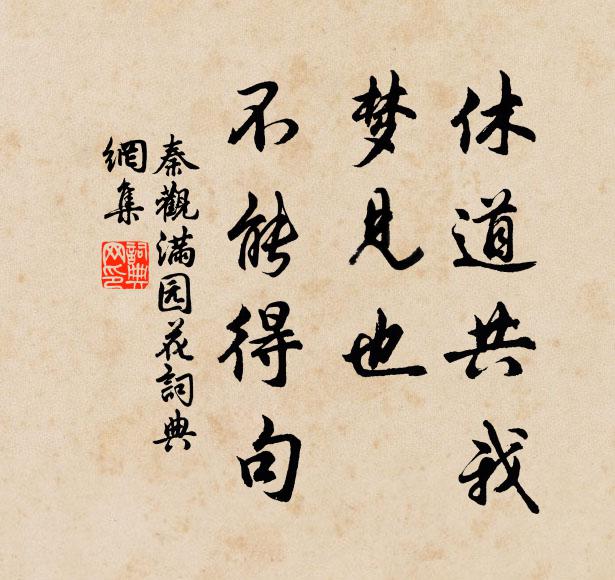 休道共我
梦见也
不能得句
秦觀满园花詞典
網集
詞典
网印